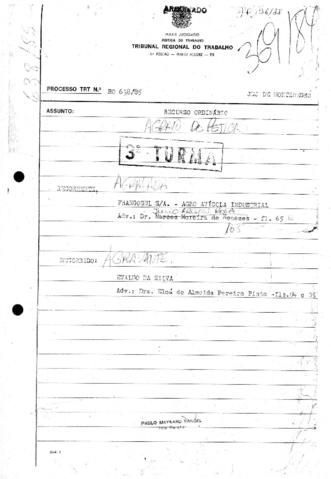 ARQUIVADO
PODER JUDICIÁRIO
JUSTIÇA DO TRABALHO
TRIBUNAL REGIONAL DO TRABALHO
4ª REGIÃO - PORTO ALEGRE - RS
369/184
638/85
PROCESSO TRT N.º RO 638/85
JCJ DE MONTENEGRO
ASSUNTO:
RECURSO ORDINÁRIO
AGRAVO DE PETIÇÃO
3ª TURMA
RECORRENTE:
AGRAVADA
FRANGOSUL S/A. - AGRO AVÍCOLA INDUSTRIAL
Adv.: Dr. Marcos Moreira de Menezes - fl. 65
RECORRIDO:
AGRAVANTE.
EVALDO DA SILVA
Adv.: Dra. Eloá de Almeida Pereira Pinto - fls.